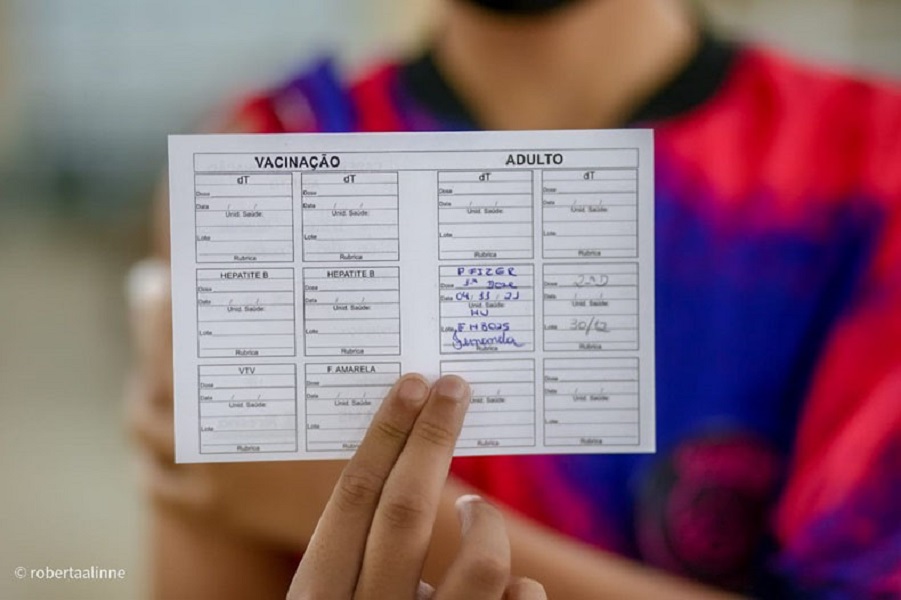 VACINAÇÃO ADULTO
dT dT dT dT
Dose Dose Dose Dose
Data / / Data / / Data / / Data / /
Unid. Saúde: Unid. Saúde: Unid. Saúde: Unid. Saúde:
Lote Lote Lote Lote
Rubrica Rubrica Rubrica Rubrica
HEPATITE B HEPATITE B PFIZER
Dose Dose Dose 1ª Dose Dose 2ª D
Data / / Data / / Data 04/11/21 Data / /
Unid. Saúde: Unid. Saúde: Unid. Saúde: Unid. Saúde:
HU
Lote Lote Lote Lote 30/12
Rubrica Rubrica Fernanda Rubrica Rubrica
VTV F. AMARELA
Dose Dose Dose
Data / / Data / / / / Data / /
Unid. Saúde: Unid. Saúde: Unid. Saúde: Unid. Saúde:
Lote Lote Lote
Rubrica Rubrica Rubrica Rubrica
© robertaalinne